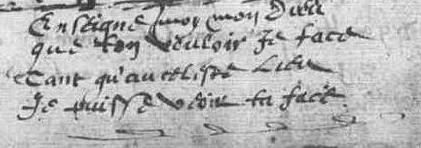 Enseigne moy mon Dieu
que ton vouloir Je face
Tant qu'au celeste Lieu
Je puisse veoir ta face